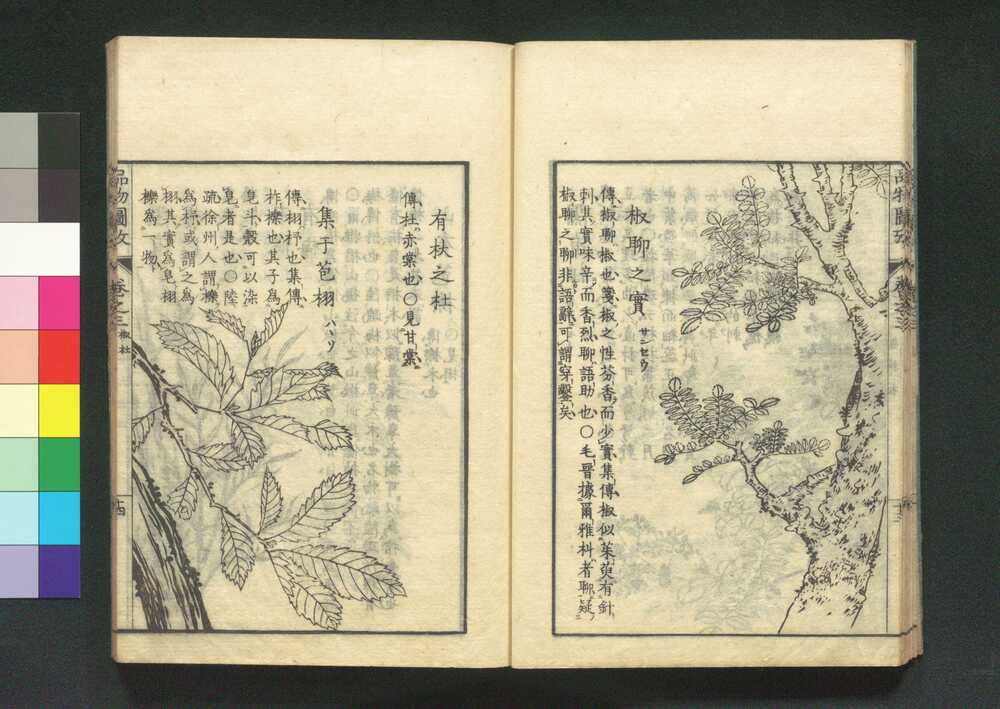 椒聊之實 サンセウ
傳椒聊椒也箋椒之性芬香而少實集傳椒似茱萸有針
刺其實味辛而香烈聊語助也○毛晋據爾雅朻者聊疑
椒聊之聊非語辭可謂穿鑿矣
有杕之杜
傳杜赤棠也○見甘棠
集于苞栩 ハヽソ
傳栩杼也集傳
柞櫟也其子爲
皂斗殼可以染
皂者是也○陸
疏徐州人謂櫟
爲杼或謂之爲
栩其實爲皂栩
櫟爲一物
品物圖攷
卷之三
椒杜
十四